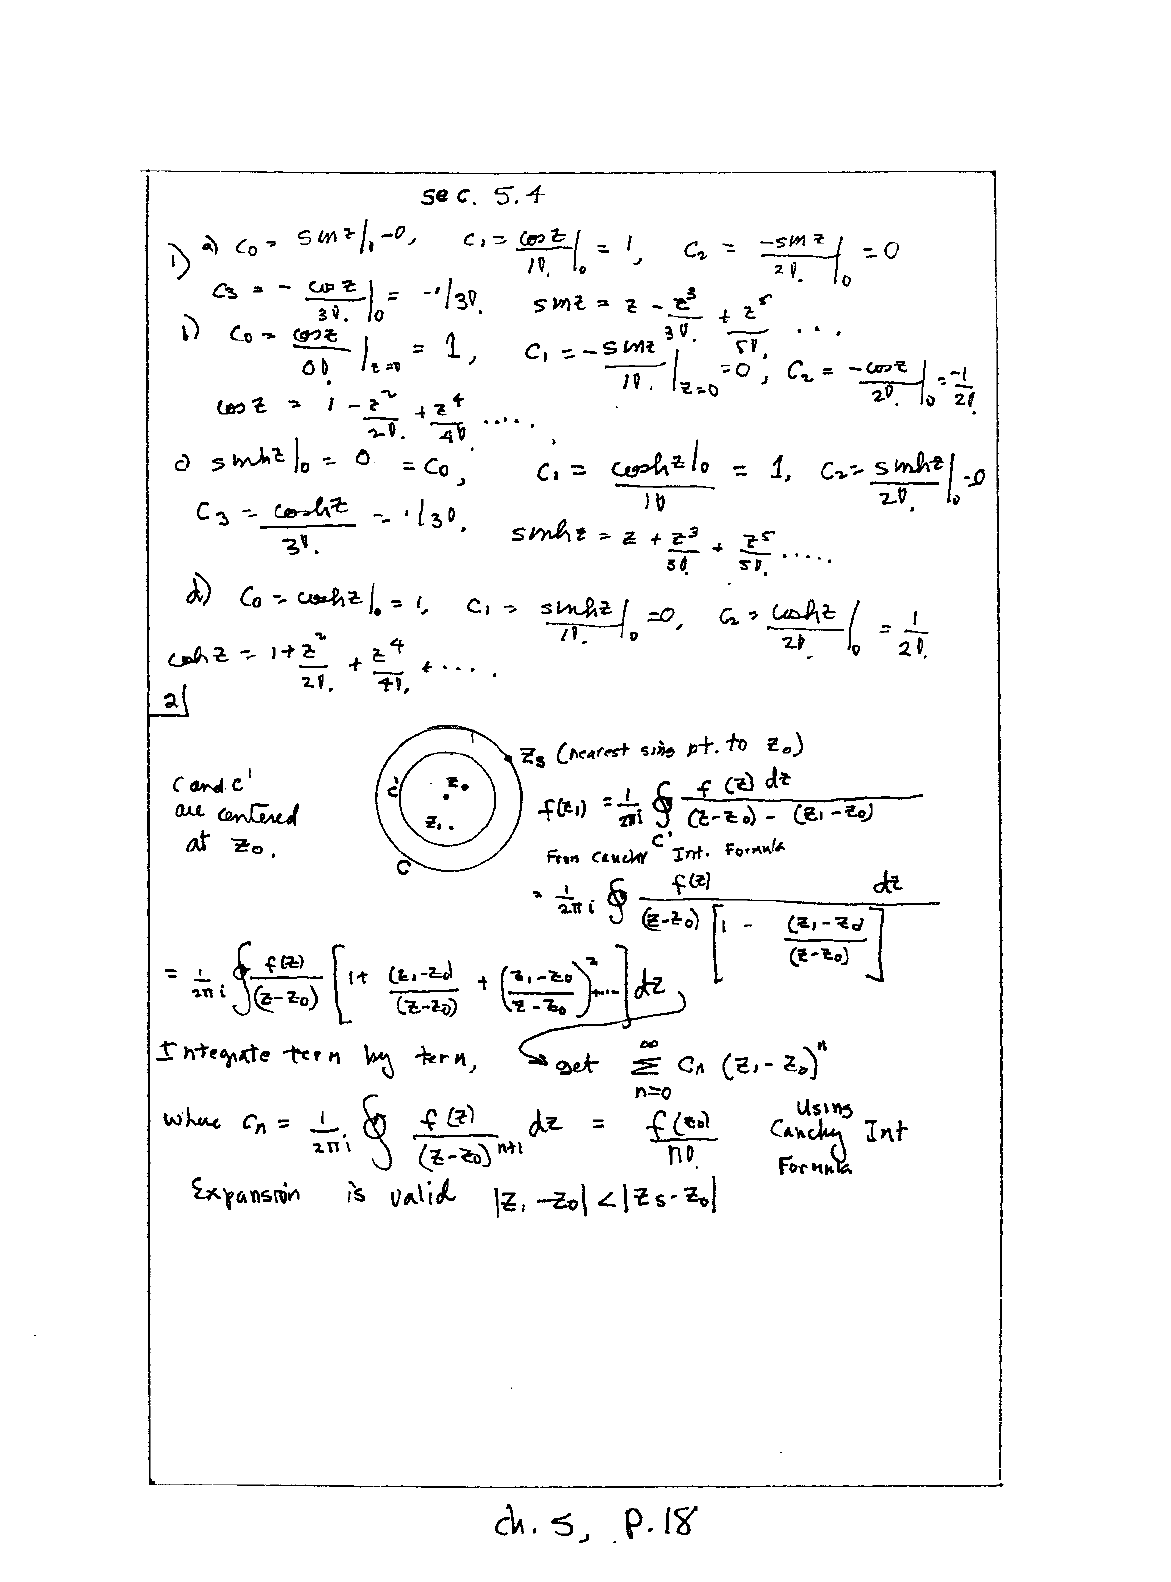 sec. 5.4
1) a) c₀ = sin z|₀ = 0, c₁ = cos z/1!|₀ = 1, c₂ = -sin z/2!|₀ = 0
c₃ = - cos z/3!|₀ = -1/3!. sin z = z - z³/3! + z⁵/5! ...
b) c₀ = cos z/0!|z=0 = 1, c₁ = -sin z/1!|z=0 = 0, c₂ = -cos z/2!|₀ = -1/2!
cos z = 1 - z²/2! + z⁴/4! .....
c) sinh z|₀ = 0 = c₀, c₁ = cosh z|₀/1! = 1, c₂ = sinh z/2!|₀ = 0
c₃ = cosh z/3! = 1/3!, sinh z = z + z³/3! + z⁵/5! .....
d) c₀ = cosh z|₀ = 1, c₁ = sinh z/1!|₀ = 0, c₂ = cosh z/2!|₀ = 1/2!
cosh z = 1 + z²/2! + z⁴/4! + ....
2)
zₛ (nearest sing pt. to z₀)
C and C'
are centered
at z₀.
C'
z₀
z₁
C
f(z₁) = 1/2πi ∮C' f(z) dz/(z-z₀) - (z₁-z₀)
From Cauchy Int. Formula
= 1/2πi ∮ f(z) dz/(z-z₀)[1 - (z₁-z₀)/(z-z₀)]
= 1/2πi ∮ f(z)/(z-z₀) [1 + (z₁-z₀)/(z-z₀) + ((z₁-z₀)/(z-z₀))² + ....] dz
Integrate term by term, get ∞ Σ n=0 cₙ (z₁-z₀)ⁿ
where cₙ = 1/2πi ∮ f(z)/(z-z₀)ⁿ⁺¹ dz = f(z₀)/n! Using Cauchy Int Formula
Expansion is valid |z₁-z₀| < |zₛ-z₀|
ch. 5, p. 18